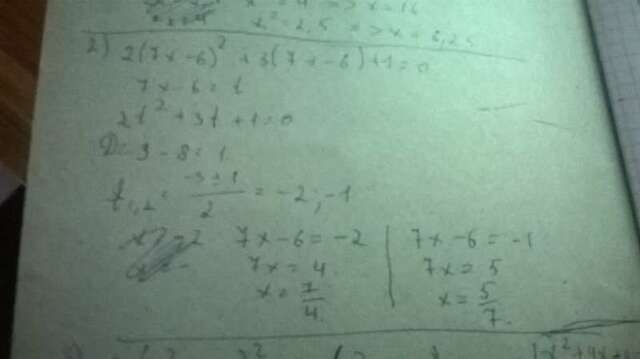 => x = 16
x² = 2,5 => x = 6,25
2) 2(7x-6)² + 3(7x-6)+1=0
7x-6 = t
2t² + 3t + 1 = 0
D = 3 - 8 = 1
t₁,₂ = (-3±1)/2 = -2; -1
7x-6 = -2 | 7x-6 = -1
7x = 4 | 7x = 5
x = 7/4. | x = 5/7.